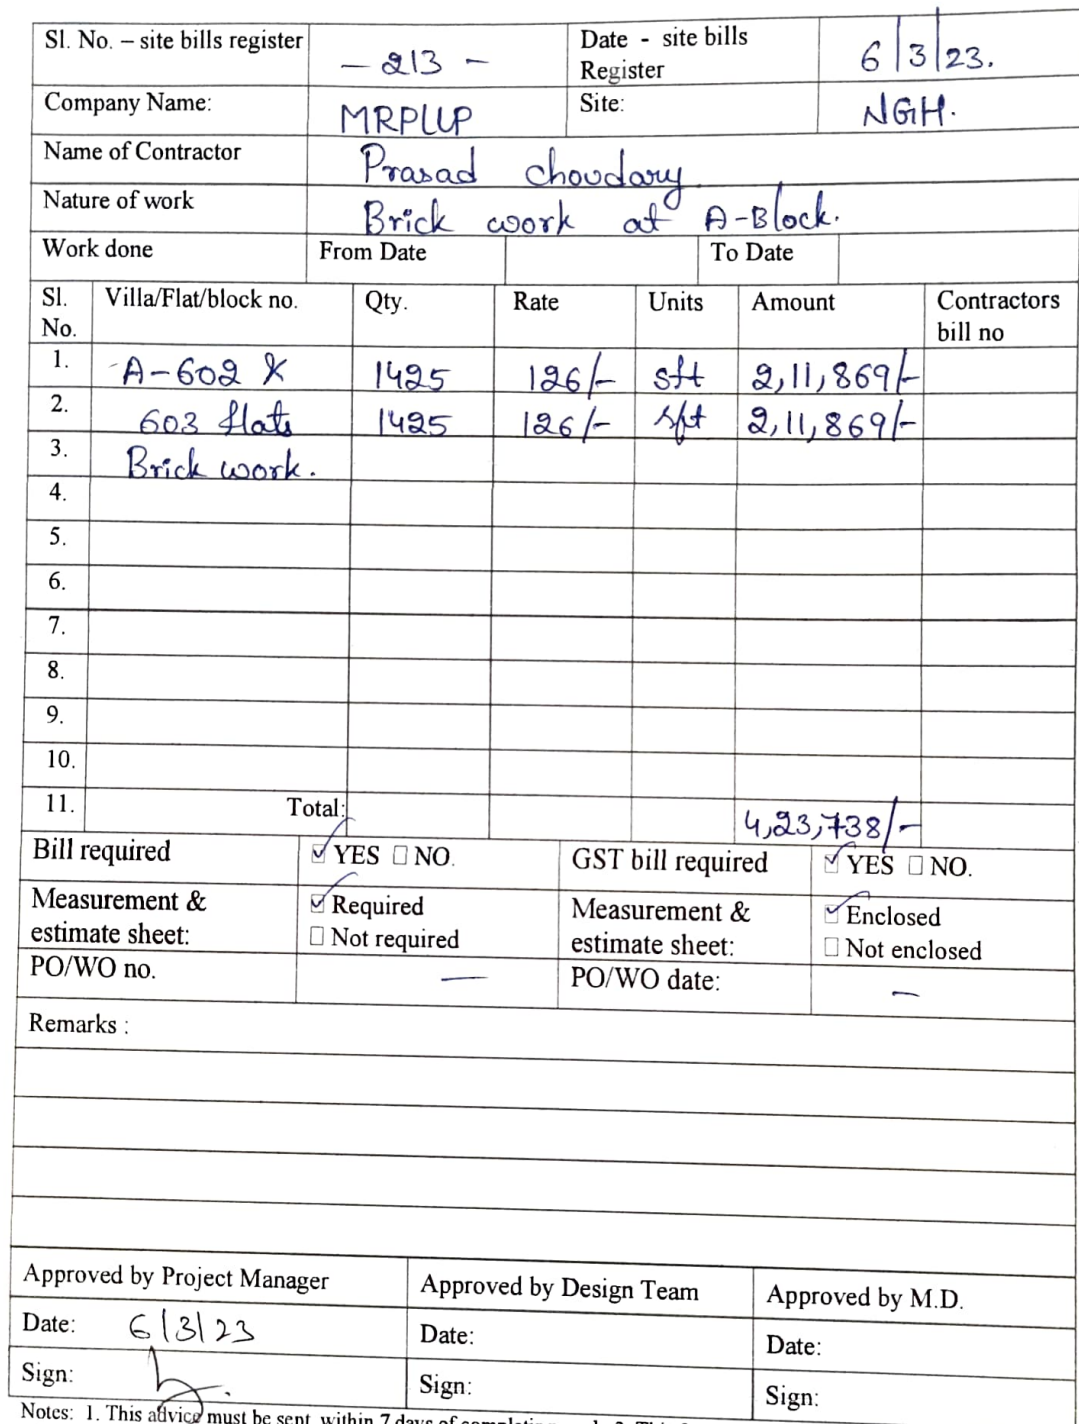 Sl. No. – site bills register - 213 - Date - site bills Register 6/3/23.
Company Name: MRPLLP Site: NGH.
Name of Contractor Prasad choudary
Nature of work Brick work at A-Block.
Work done From Date To Date
Sl. No. Villa/Flat/block no. Qty. Rate Units Amount Contractors bill no
1. A-602 & 1425 126/- sft 2,11,869/-
2. 603 flats 1425 126/- sft 2,11,869/-
3. Brick work.
4.
5.
6.
7.
8.
9.
10.
11. Total: 4,23,738/-
Bill required ☑ YES ☐ NO. GST bill required ☑ YES ☐ NO.
Measurement & estimate sheet: ☑ Required ☐ Not required Measurement & estimate sheet: ☑ Enclosed ☐ Not enclosed
PO/WO no. — PO/WO date: –
Remarks :
Approved by Project Manager Approved by Design Team Approved by M.D.
Date: 6/3/23 Date: Date:
Sign: Sign: Sign:
Notes: 1. This advice must be sent within 7 days of